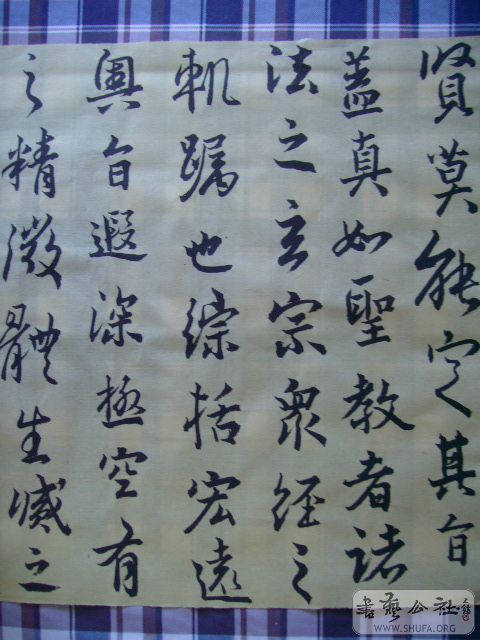 賢莫能定其旨
蓋真如聖教者諸
法之玄宗衆經之
軌躅也綜括宏遠
奥旨遐深極空有
之精微體生滅之
書藝公社
WWW.SHUFA.ORG